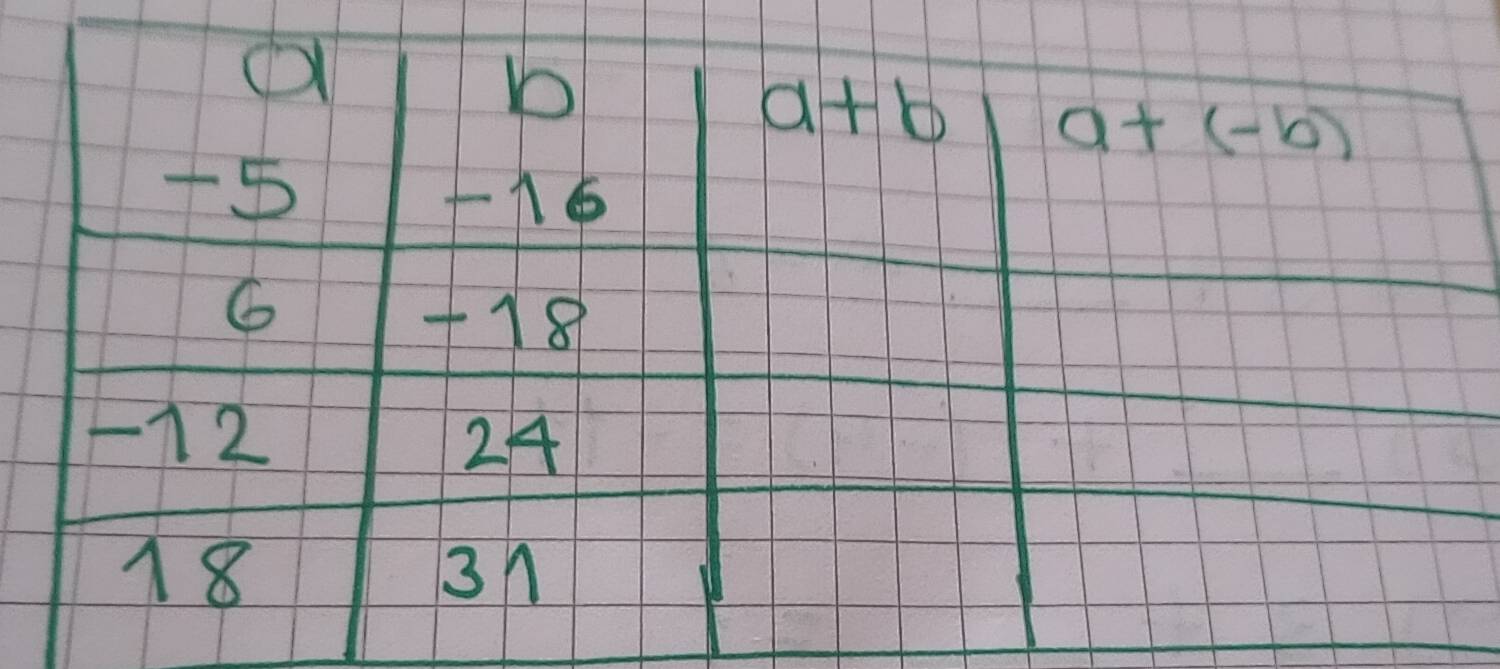 a b a+b a+(-b)
-5 -16
6 -18
-12 24
18 31